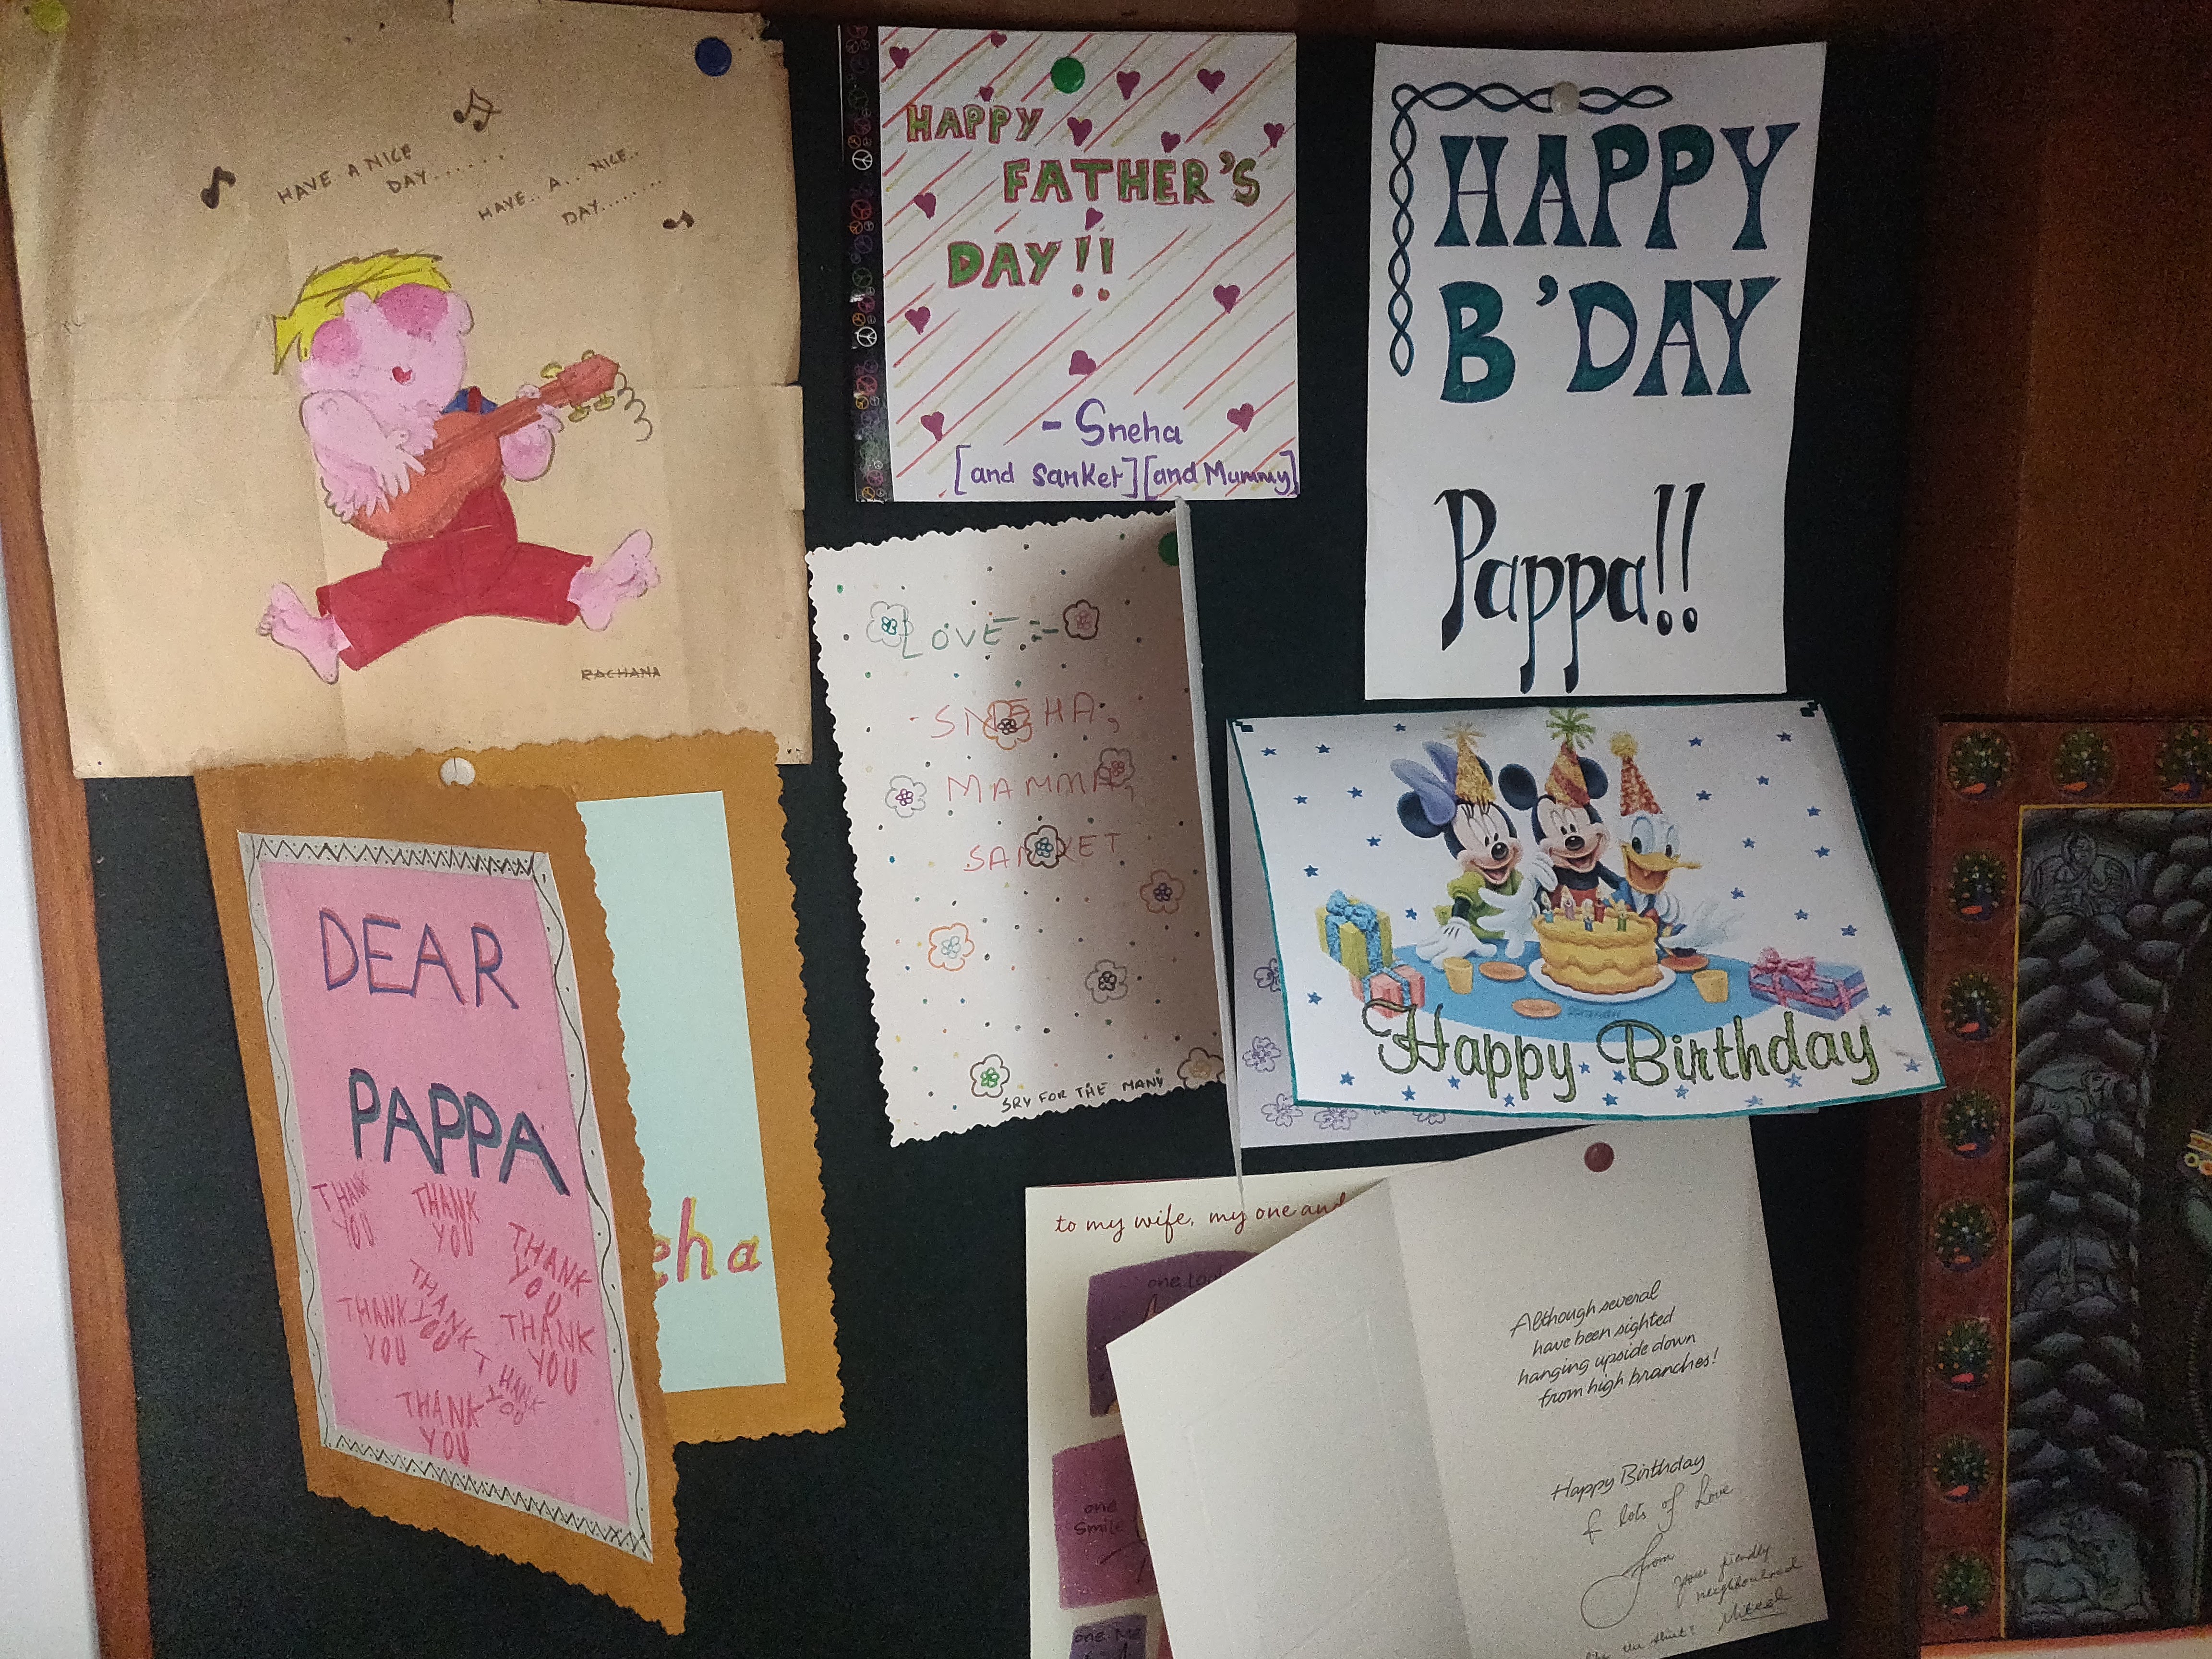 HAVE A NICE
DAY......
HAVE.. A.. NICE..
DAY........
RACHANA
HAPPY
FATHER'S
DAY!!
- Sneha
[and Sanket][and Mummy]
HAPPY
B'DAY
Pappa!!
LOVE :-
SNEHA,
MAMMA,
SANKET
SRY FOR THE MANY
Happy Birthday
DEAR
PAPPA
THANK
YOU
THANK
YOU
THANK
YOU
THANK
YOU
THANK
YOU
THANK
YOU
THANK
YOU
THANK
YOU
eha
to my wife, my one and
one
Smile
one
Although several
have been sighted
hanging upside down
from high branches!
Happy Birthday
& lots of Love
from
your friendly
neighbourhood